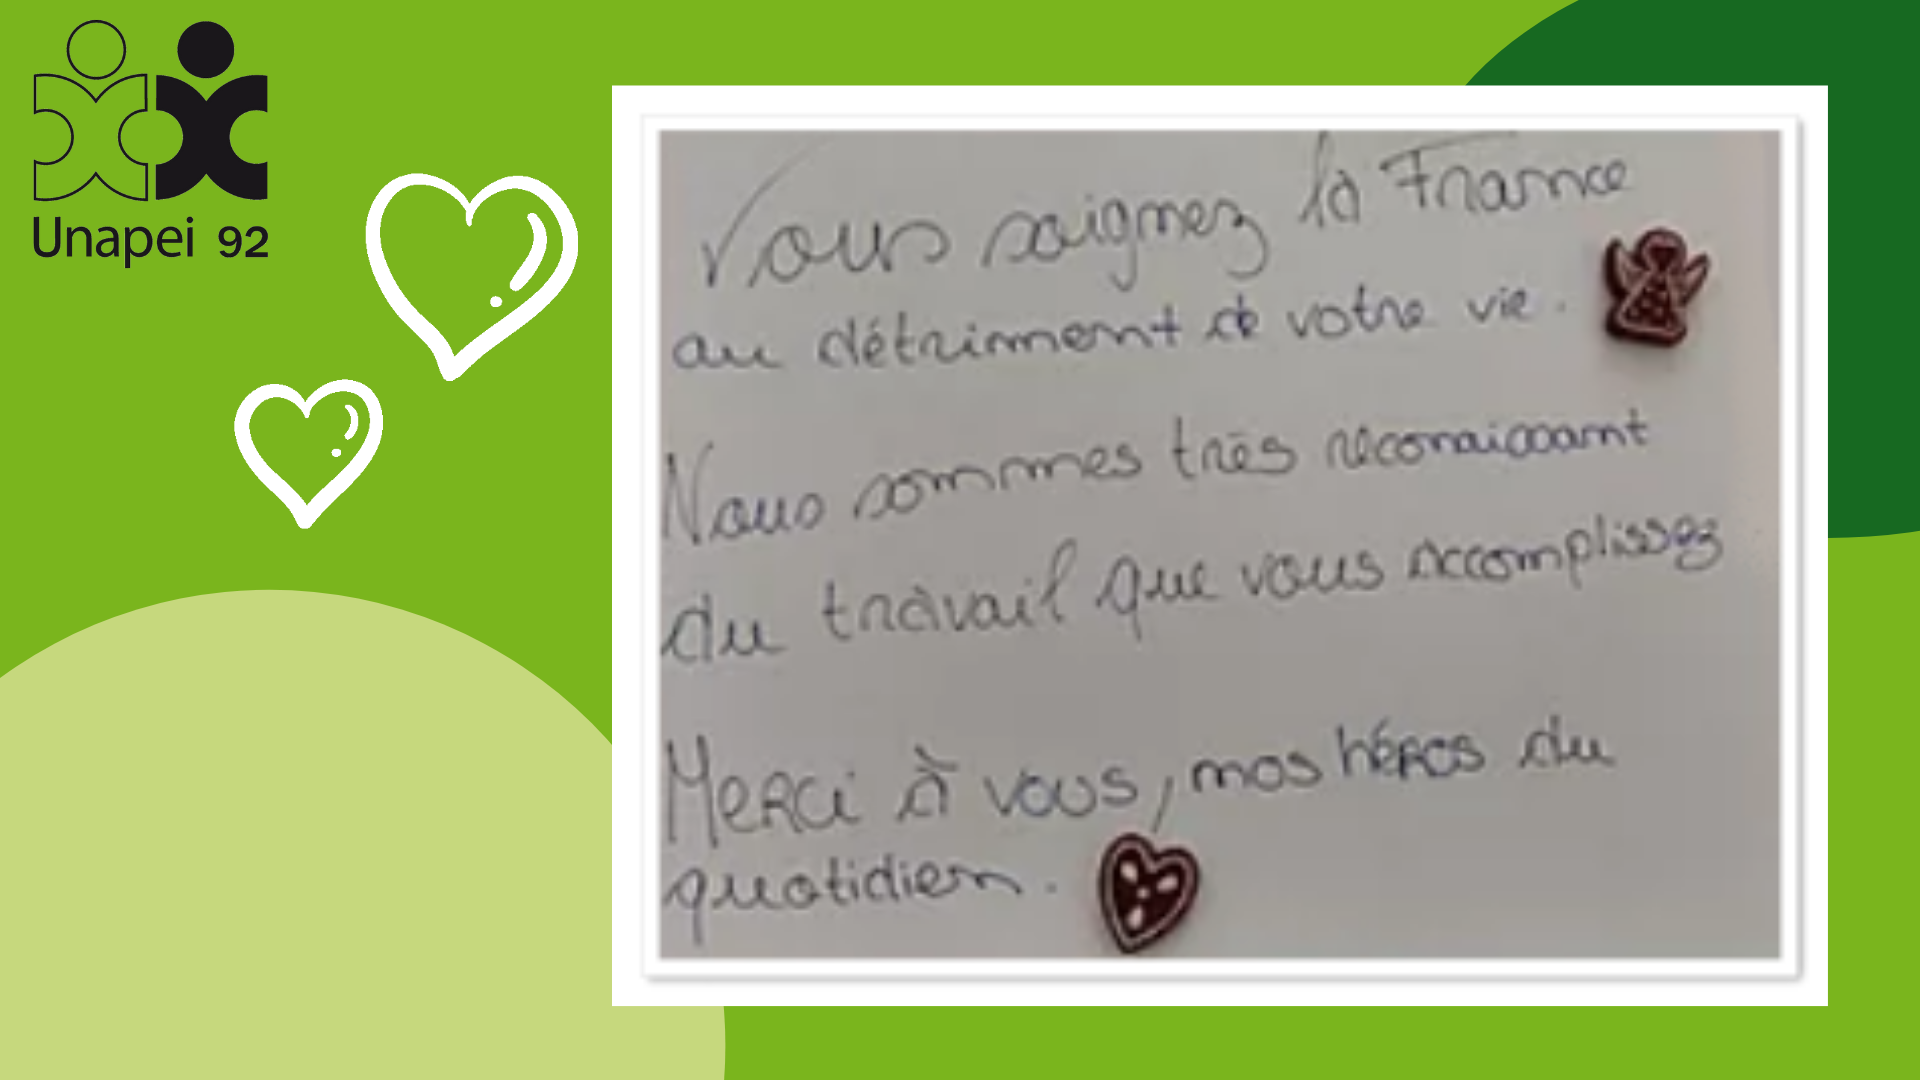 Unapei 92
Vous soignez la France
au détriment de votre vie.
Nous sommes très reconaissant
du travail que vous accomplissez
Merci à vous, nos héros du
quotidien.